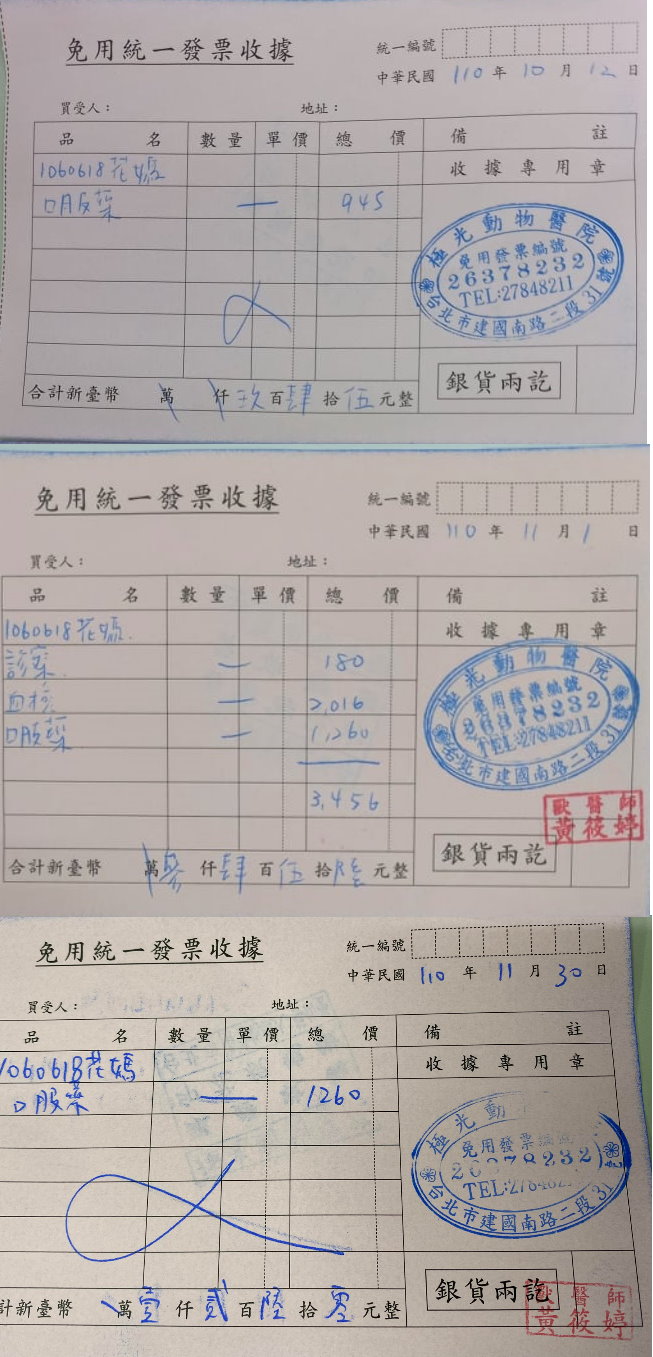 免用統一發票收據
統一編號
中華民國 110 年 10 月 12 日
買受人： 地址：
品名 數量 單價 總價 備註
1060618花媽 收據專用章
口服藥 一 945
極光動物醫院
免用發票編號
26378232
TEL:27848211
台北市建國南路二段31號
銀貨兩訖
合計新臺幣 萬 仟 玖 百 肆 拾 伍 元整
免用統一發票收據
統一編號
中華民國 110 年 11 月 1 日
買受人： 地址：
品名 數量 單價 總價 備註
1060618花媽. 收據專用章
診察. 一 180
血檢 一 2,016
口服藥 一 1,260
3,456
極光動物醫院
免用發票編號
26378232
TEL:27848211
台北市建國南路二段31號
獸醫師
黃筱婷
銀貨兩訖
合計新臺幣 萬 參 仟 肆 百 伍 拾 陸 元整
免用統一發票收據
統一編號
中華民國 110 年 11 月 30 日
買受人： 地址：
品名 數量 單價 總價 備註
1060618花媽 收據專用章
口服藥 一 1260
極光動
免用發票編號
26378232
TEL:278482
台北市建國南路二段31號
銀貨兩訖
獸醫師
黃筱婷
計新臺幣 萬 壹 仟 貳 百 陸 拾 零 元整